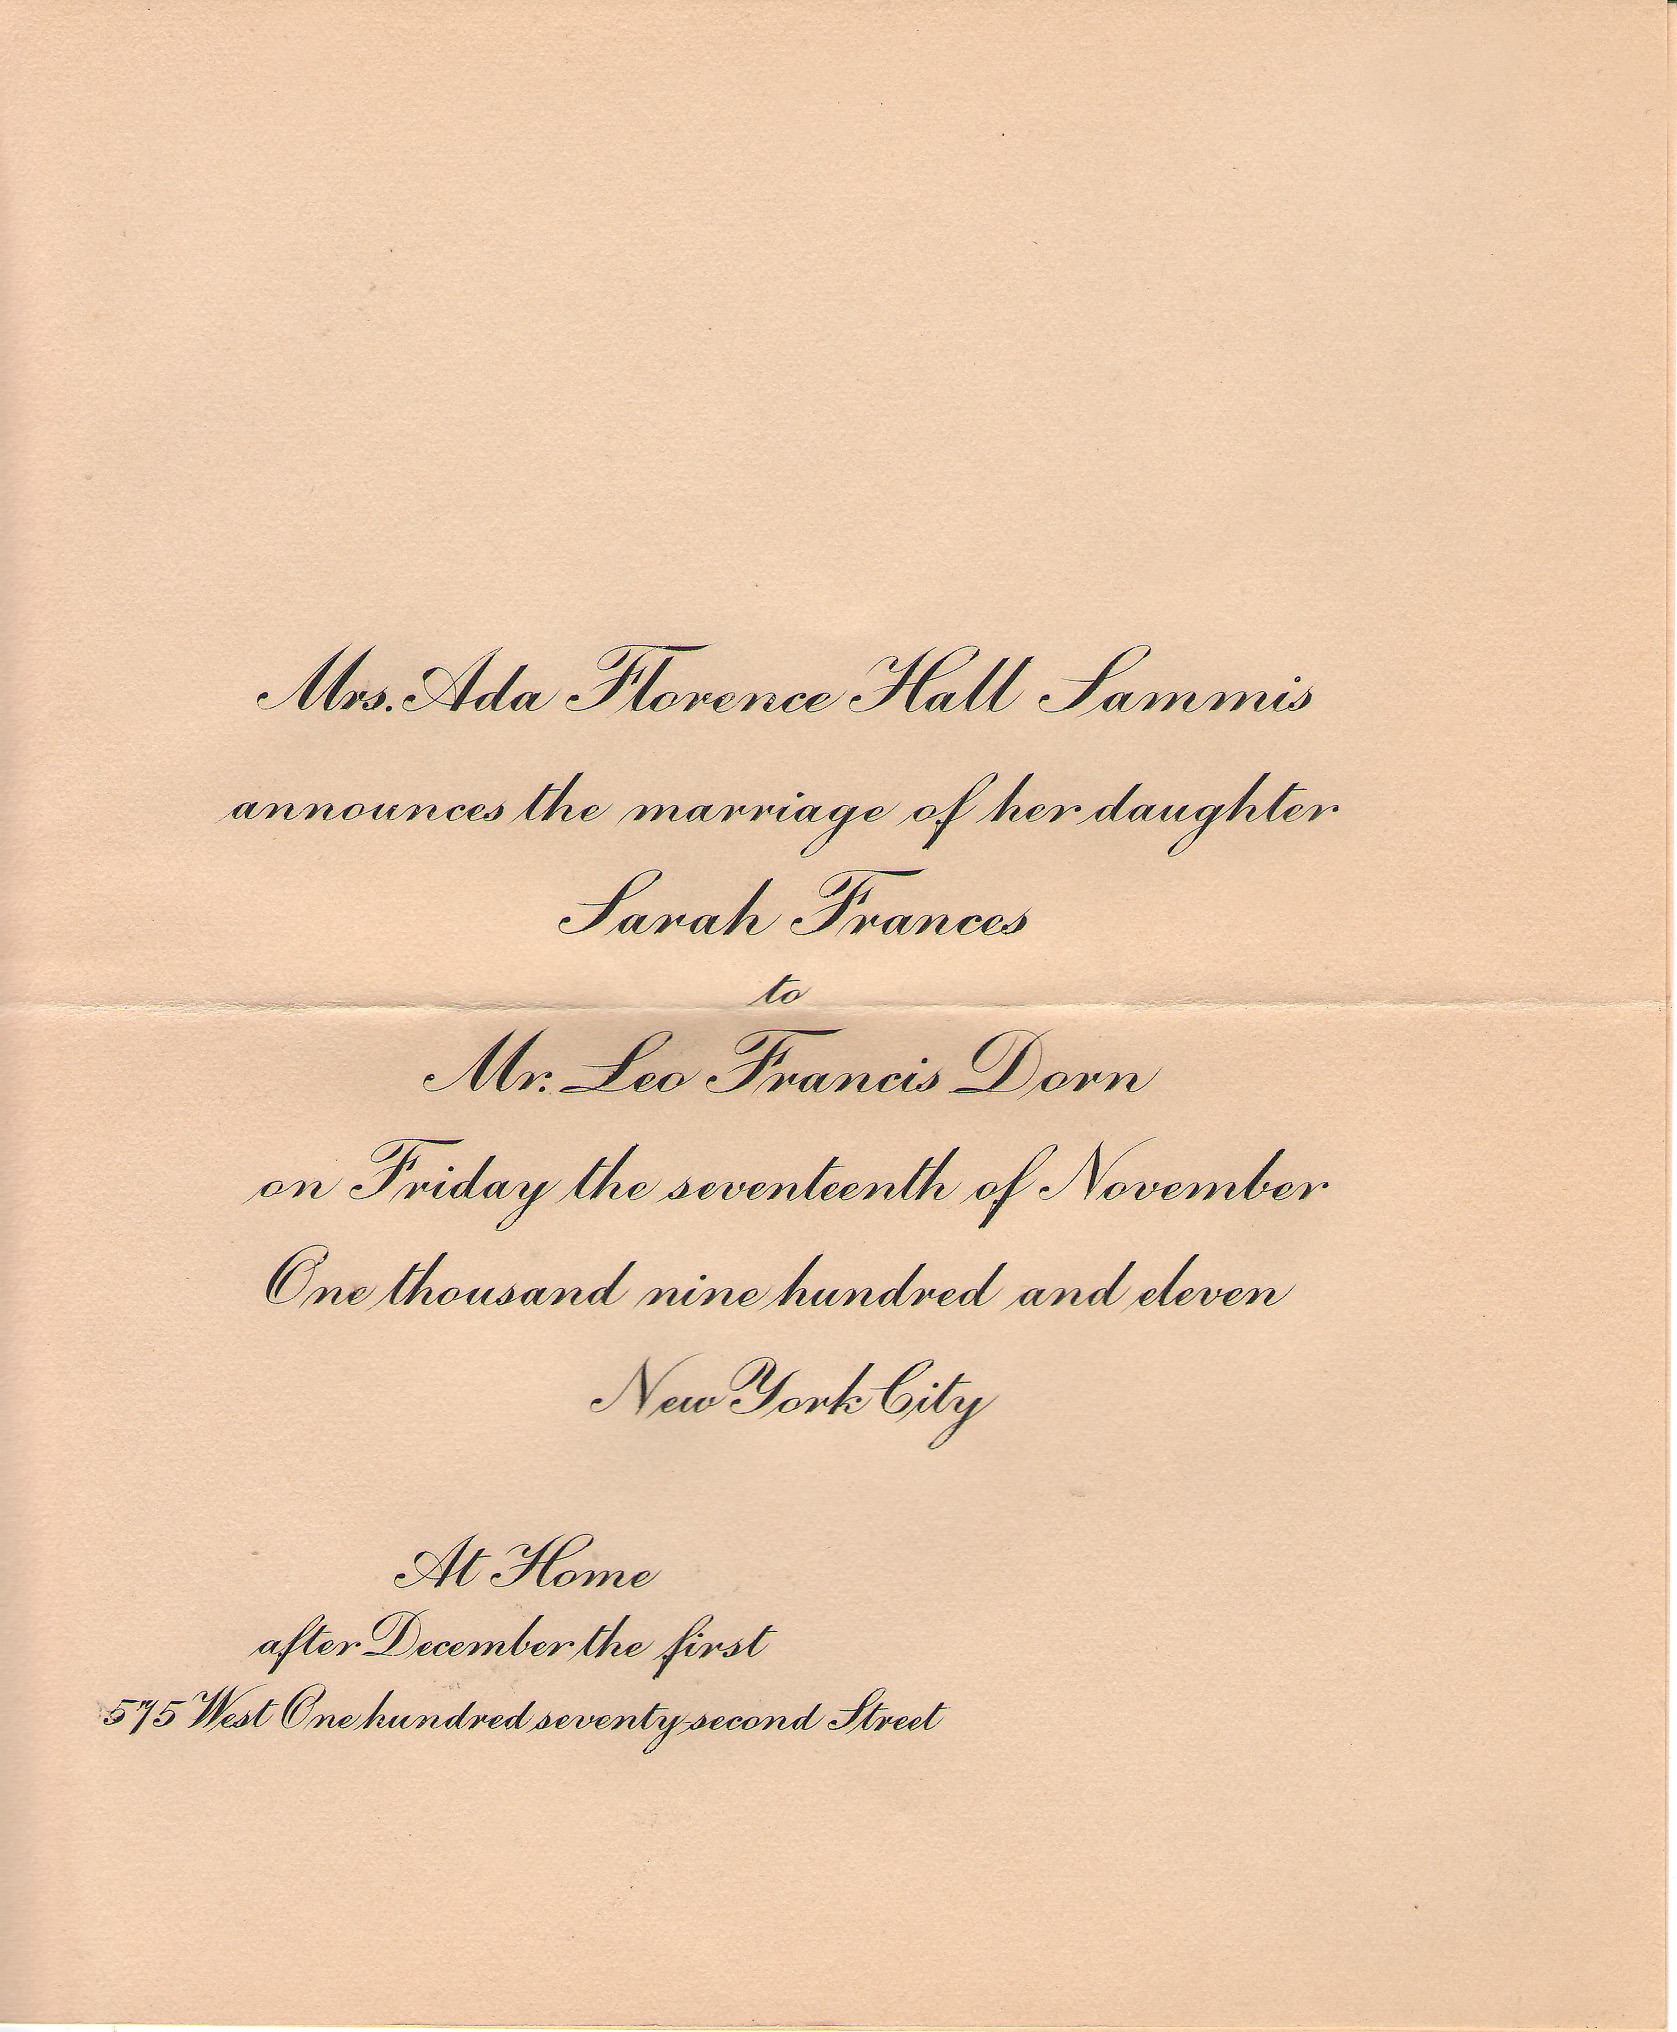 Mrs. Ada Florence Hall Sammis
announces the marriage of her daughter
Sarah Frances
to
Mr. Leo Francis Dorn
on Friday the seventeenth of November
One thousand nine hundred and eleven
New York City
At Home
after December the first
575 West One hundred seventy-second Street